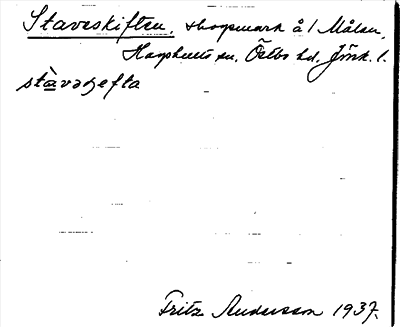 Staveskiften, skogsmark å 1 Målen,
Hagshults sn, Östbo hd, Jönk. l.
stàvəʒefta
Fritz Andersson 1937.